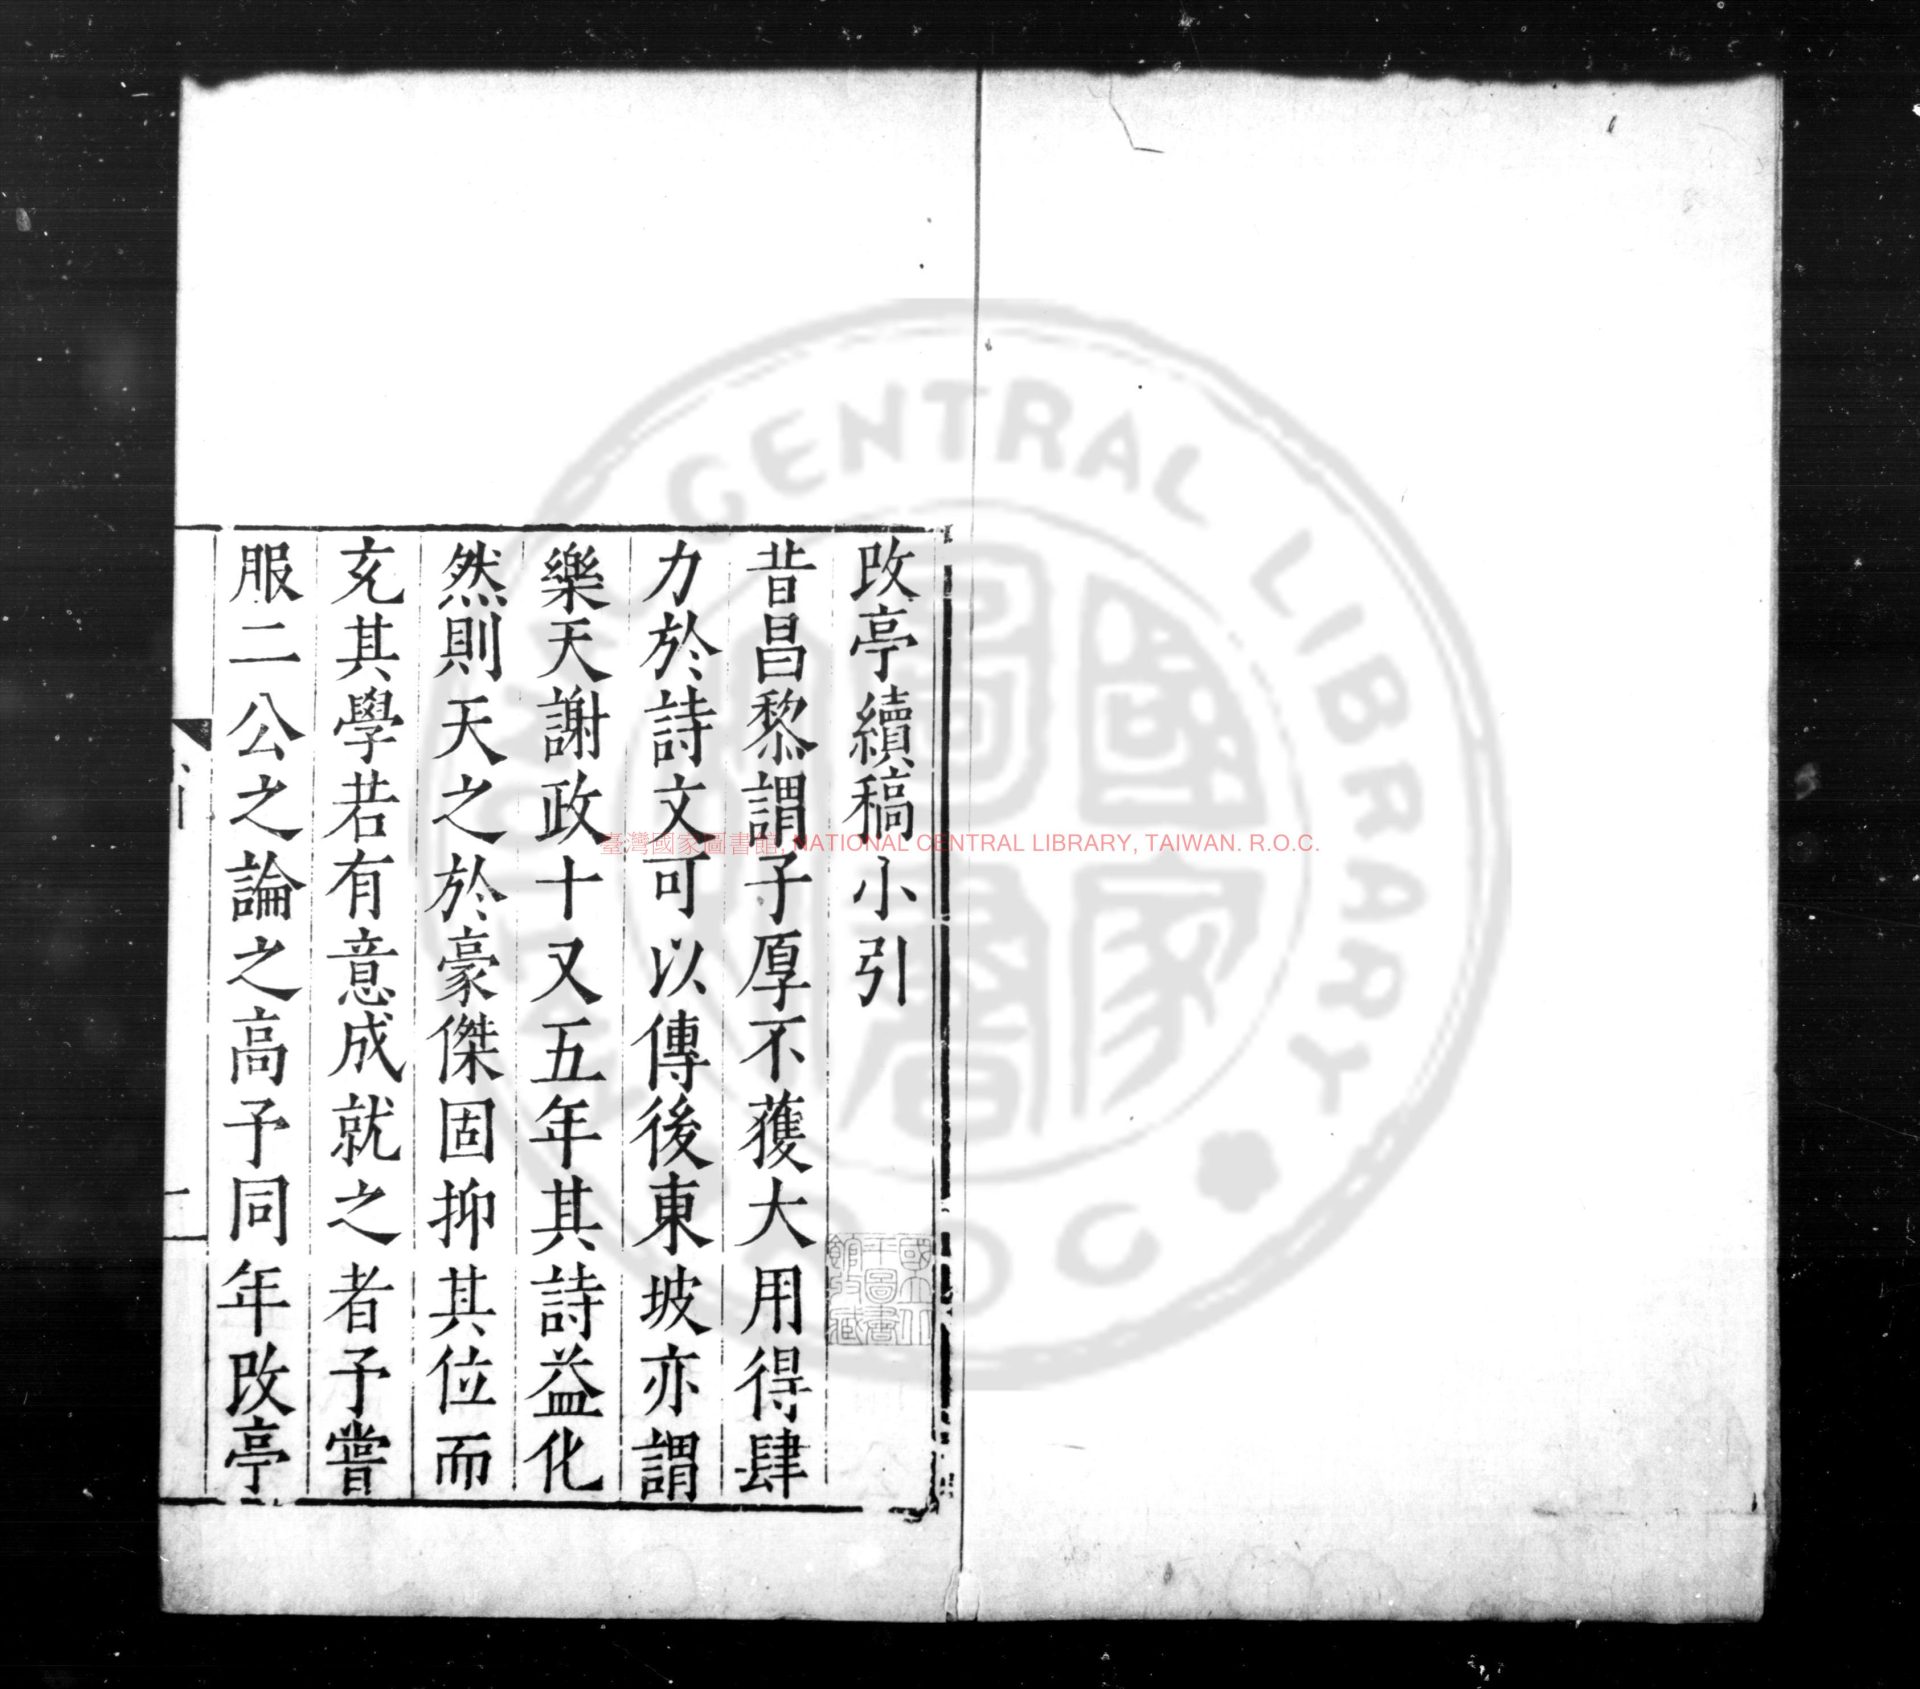 改亭續稿小引
昔昌黎謂子厚不獲大用得肆
力於詩文可以傳後東坡亦謂
樂天謝政十又五年其詩益化
然則天之於豪傑固抑其位而
充其學若有意成就之者予嘗
服二公之論之高予同年改亭
國立北
平圖書
館收藏
臺灣國家圖書館, NATIONAL CENTRAL LIBRARY, TAIWAN. R.O.C.
NATIONAL CENTRAL LIBRARY
R.O.C.
國家
圖書